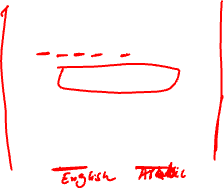 English Arabic